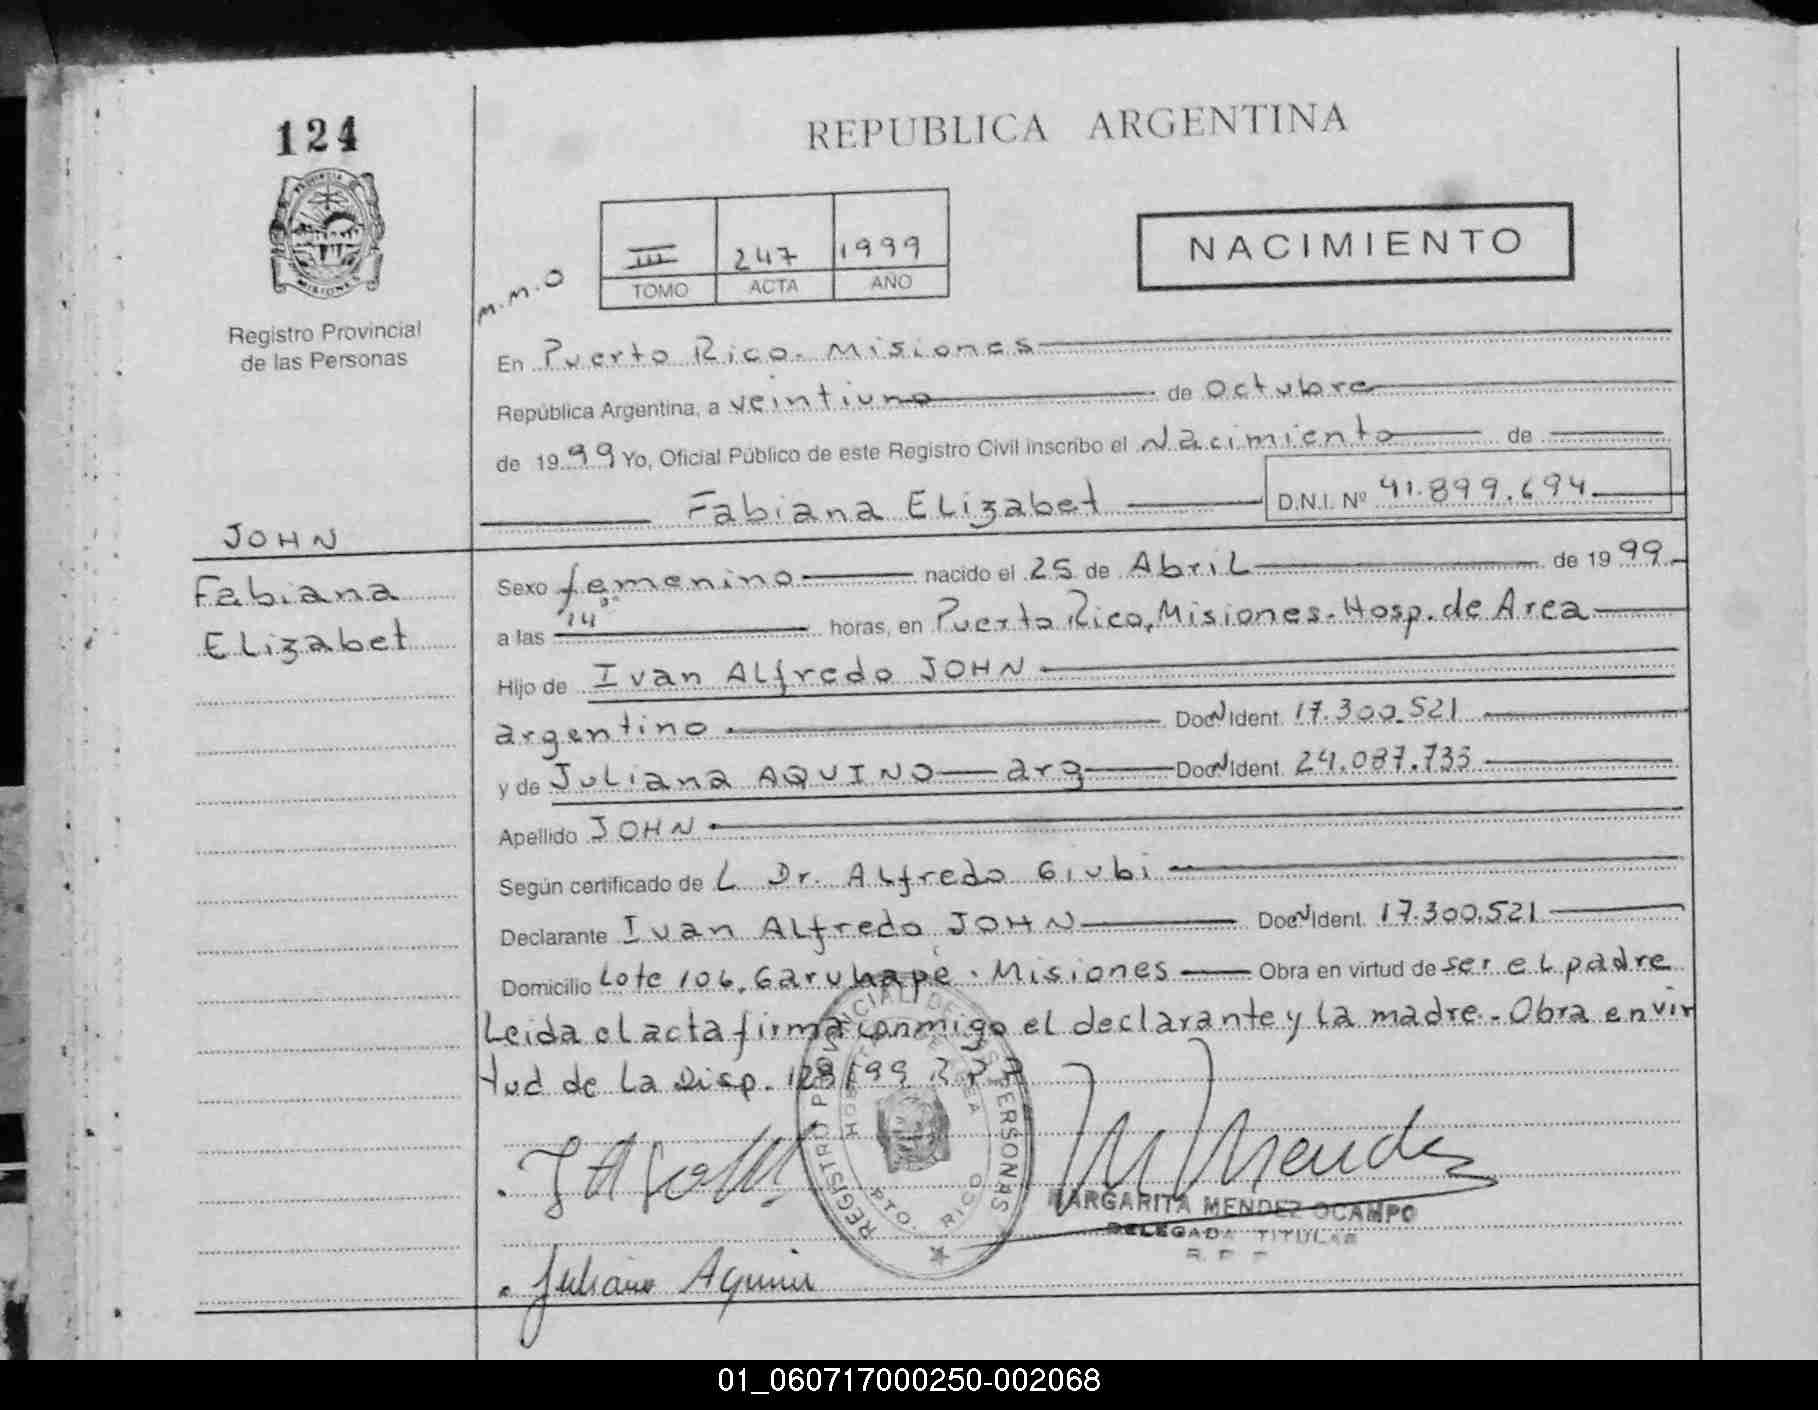 124
REPUBLICA ARGENTINA
PROVINCIA
MISIONES
Registro Provincial
de las Personas
m.m.o
III 247 1999
TOMO ACTA AÑO
NACIMIENTO
En Puerto Rico. Misiones
República Argentina, a veintiuno de Octubre
de 1999 Yo, Oficial Público de este Registro Civil inscribo el Nacimiento de
Fabiana Elizabet D.N.I. Nº 41.899.694
JOHN
Fabiana
Elizabet
Sexo femenino nacido el 25 de Abril de 1999
a las 14 horas, en Puerto Rico, Misiones - Hosp. de Area
Hijo de Ivan Alfredo JOHN
argentino Doc N Ident. 17.300.521
y de Juliana AQUINO arg Doc N Ident. 24.087.735
Apellido JOHN
Según certificado de L Dr. Alfredo Giubi
Declarante Ivan Alfredo JOHN Doc N Ident. 17.300.521
Domicilio Lote 106, Garuhapé. Misiones Obra en virtud de ser el padre
Leida el acta firma conmigo el declarante y la madre. - Obra en vir
tud de la Disp. 128/99 R.P.P
REGISTRO PROVINCIAL DE LAS PERSONAS
PTO. RICO
M Mendez
MARGARITA MENDEZ OCAMPO
DELEGADA TITULAR
Juliana Aquino
01_060717000250-002068